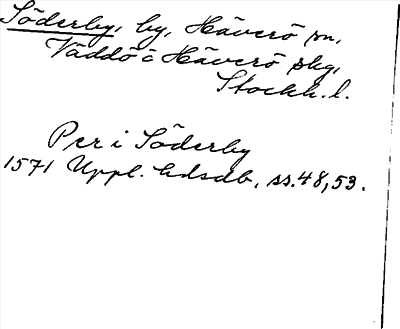 Söderby, by, Häverö sn,
Väddö o Häverö skg,
Stockh. l.
Per i Söderby
1571 Uppl. hdsdb, ss. 48, 53.